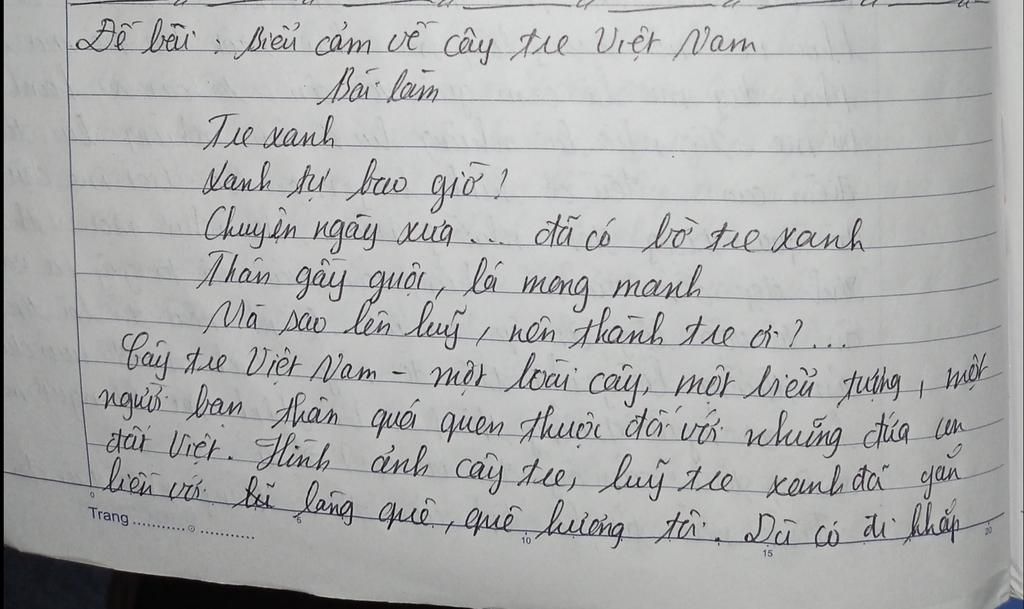 Đề bài : Biểu cảm về cây tre Việt Nam
Bài làm
Tre xanh
Xanh tự bao giờ ?
Chuyện ngày xưa ... đã có bờ tre xanh
Thân gầy guộc, lá mong manh
Mà sao lên luỹ, nên thành tre ơi ? ...
Cây tre Việt Nam - một loài cây, một biểu tượng, một
người bạn thân quá quen thuộc đối với những đứa con
đất Việt. Hình ảnh cây tre, luỹ tre xanh đã gắn
liền với làng quê, quê hương tôi. Dù có đi khắp
Trang
0 5 10 15 20